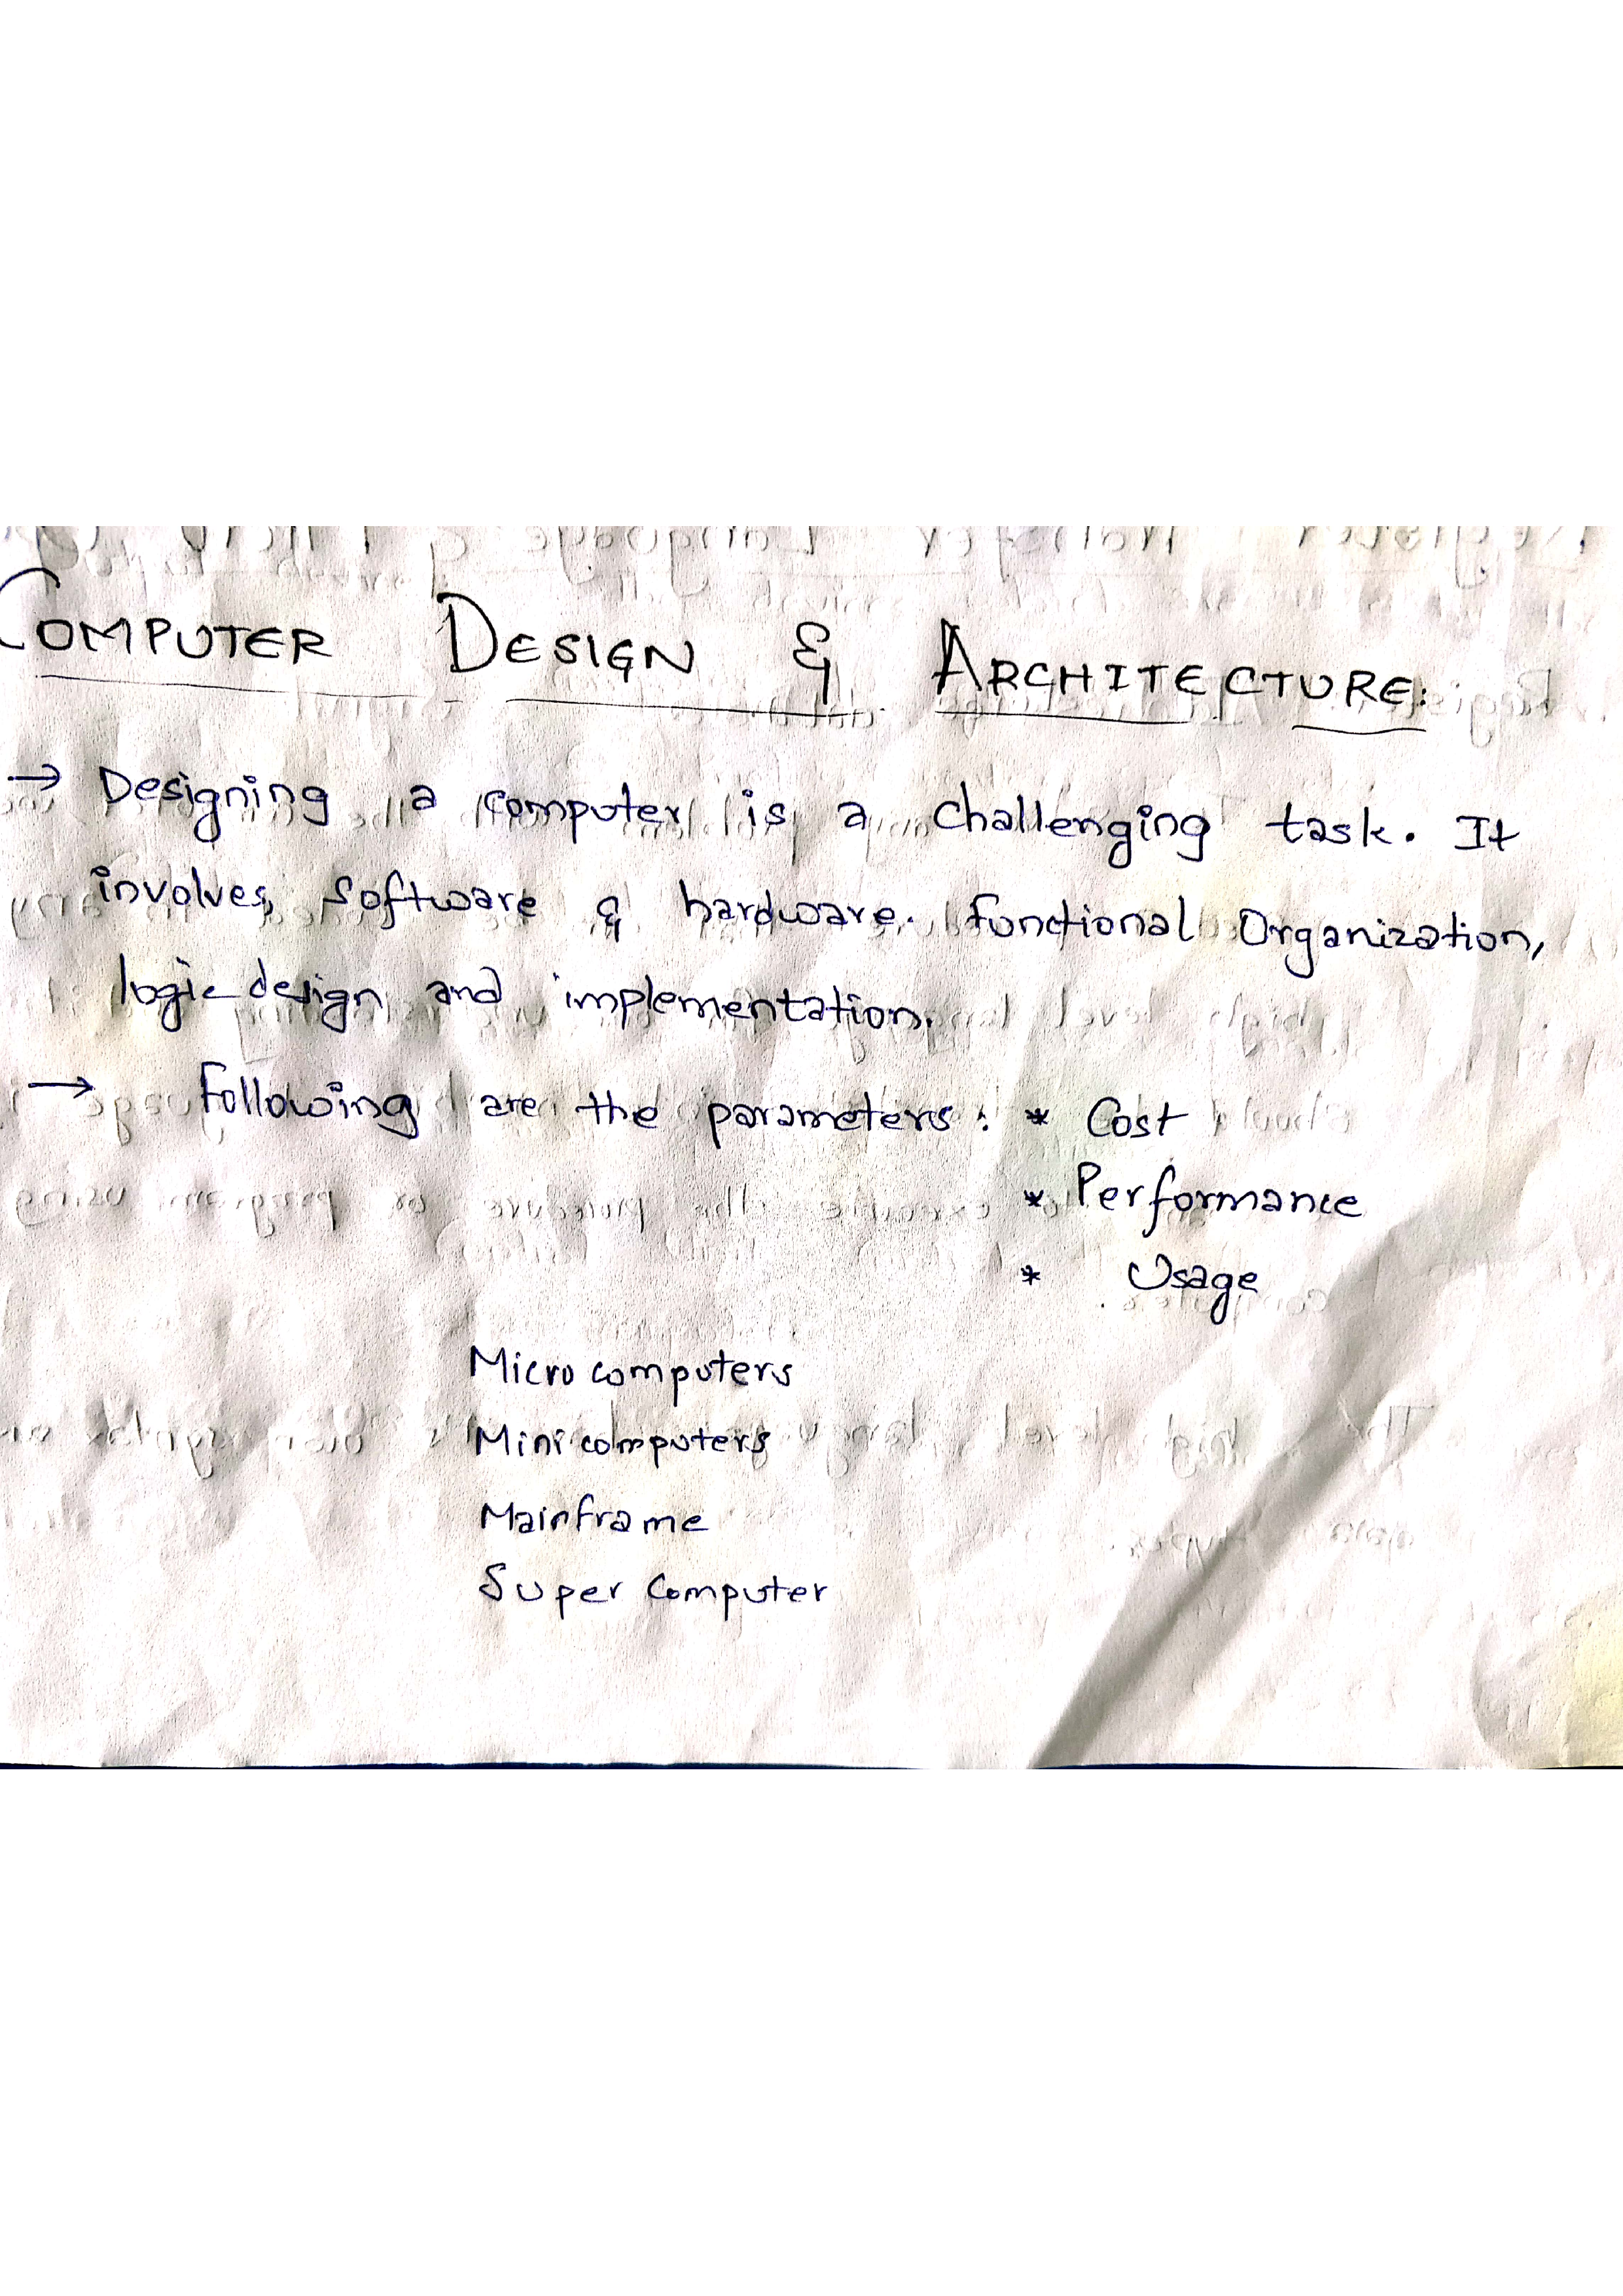 COMPUTER DESIGN & ARCHITECTURE:
→ Designing a computer is a challenging task. It
involves, software & hardware. Functional Organization,
logic design and implementation.
→ Following are the parameters: * Cost
* Performance
* Usage
Micro computers
Mini computers
Mainframe
Super Computer